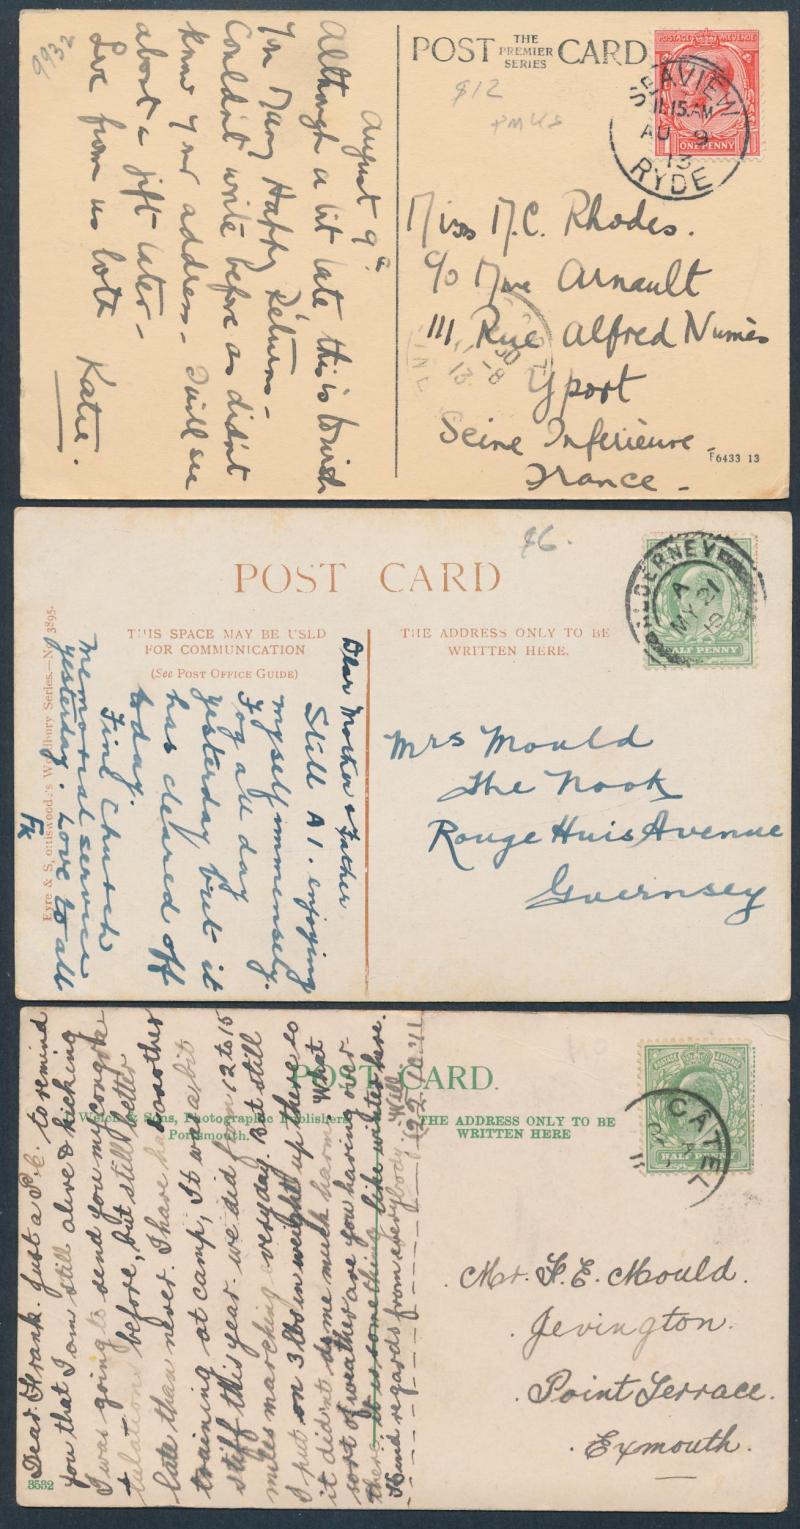 9932
August 9th
Although a bit late this is to wish
You Many Happy Returns –
Couldn't write before as didn't
know your address – I will see
about a gift later –
Love from us both
Katie.
POST THE PREMIER SERIES CARD
$12
PMKS
POSTAGE REVENUE
ONE PENNY
SEAVIEW
11.15 AM
AU 9
13
RYDE
Miss M.C. Rhodes.
c/o Mme Arnault
111 Rue Alfred Numès
Yport
Seine Inférieure –
France –
F6433 13
$6.
POST CARD
THIS SPACE MAY BE USED
FOR COMMUNICATION
(See POST OFFICE GUIDE)
THE ADDRESS ONLY TO BE
WRITTEN HERE.
Eyre & Spottiswoode's Woodbury Series.—No. 3895.
ALDERNEY
A
MY 21
10
HALF PENNY
Dear Mother & Father
Still A1. enjoying
myself immensely.
Fog all day
yesterday but it
has cleared off
today.
Fine Church
memorial service
yesterday. Love to all
Fk
Mrs Mould
The Nook
Rouge Huis Avenue
Guernsey
POST CARD.
Welch & Sons, Photographic Publishers
Portsmouth.
THE ADDRESS ONLY TO BE
WRITTEN HERE
HALF PENNY
CATEL
11
Dear Frank. Just a P.C. to remind
you that I am still alive & kicking
I was going to send you my congra
tulations before, but still better
late than never. I have had another
training at camp, It was a bit
stiff this year. we did from 12 to 15
miles marching everyday. But still
I put on 3 lbs in weight up there so
it didn't do me much harm. What
sort of weather are you having over
there it is something like winter here.
Kind regards from everybody. Will
3532
Mr. F. E. Mould.
Jevington.
Point Terrace.
Exmouth.